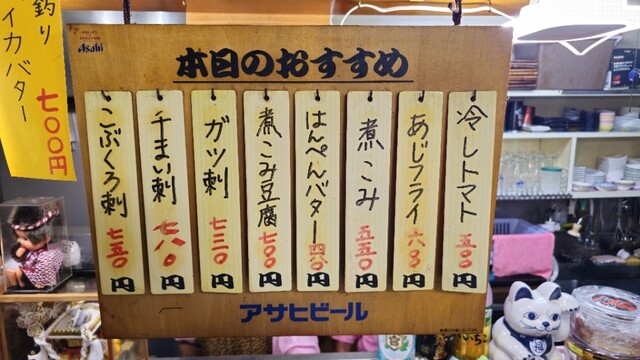 釣り
イカバター 七〇〇円
Asahi
本日のおすすめ
冷しトマト 五〇〇円
あじフライ 六〇〇円
煮こみ 五五〇円
はんぺんバター 四五〇円
煮こみ豆腐 七〇〇円
ガツ刺 七三〇円
千まい刺 七八〇円
こぶくろ刺 七五〇円
アサヒビール